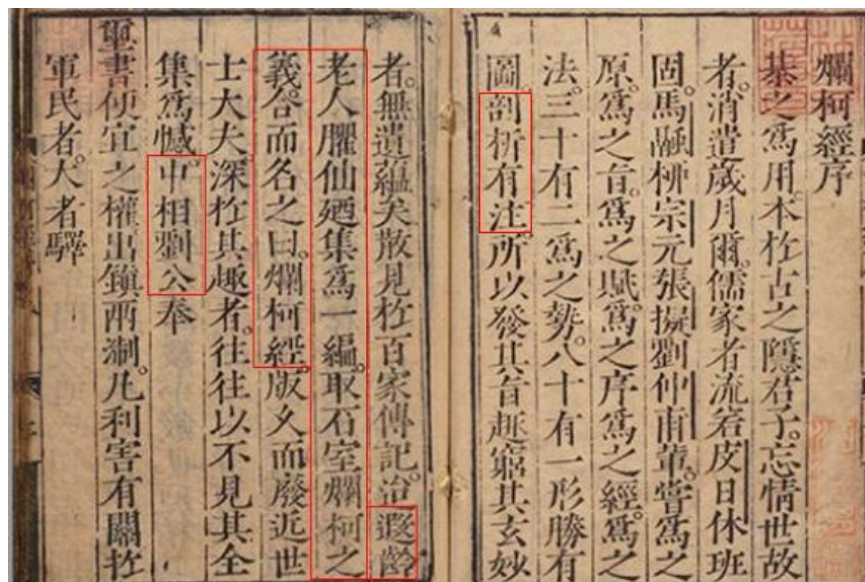 爛柯經序
棊之爲用。本於古之隱君子。忘情世故
者。消遣歲月爾。儒家者流。若皮日休班
固。馬融栁宗元張擬劉仲甫輩。嘗爲之
原。爲之旨。爲之賦。爲之序。爲之經。爲之
法。三十有二爲之勢。八十有一形勝有
圖。剖析有注。所以發其旨趣。窮其玄妙
者。無遺蘊矣。散見於百家傳記。洎遐齡
老人臞仙廼集爲一編。取石室爛柯之
義。合而名之曰。爛柯經。版久而廢。近世
士大夫。深於其趣者。往往以不見其全
集爲憾。中相劉公奉
聖書便宜之權。出鎭兩淛。凡利害有關於
軍民者。大者驛